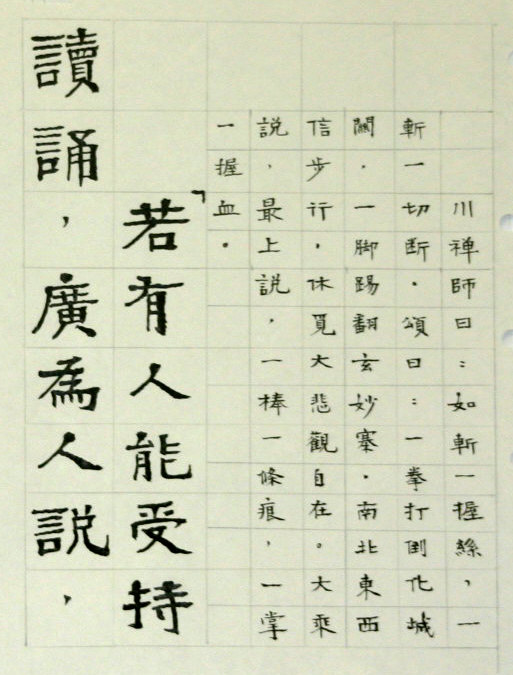 川禪師曰：如斬一握絲，一
斬一切斷。頌曰：一拳打倒化城
關。一脚踢翻玄妙寨。南北東西
信步行，休覓大悲觀自在。大乘
說，最上說，一棒一條痕，一掌
一握血。
「若有人能受持
讀誦，廣為人說，